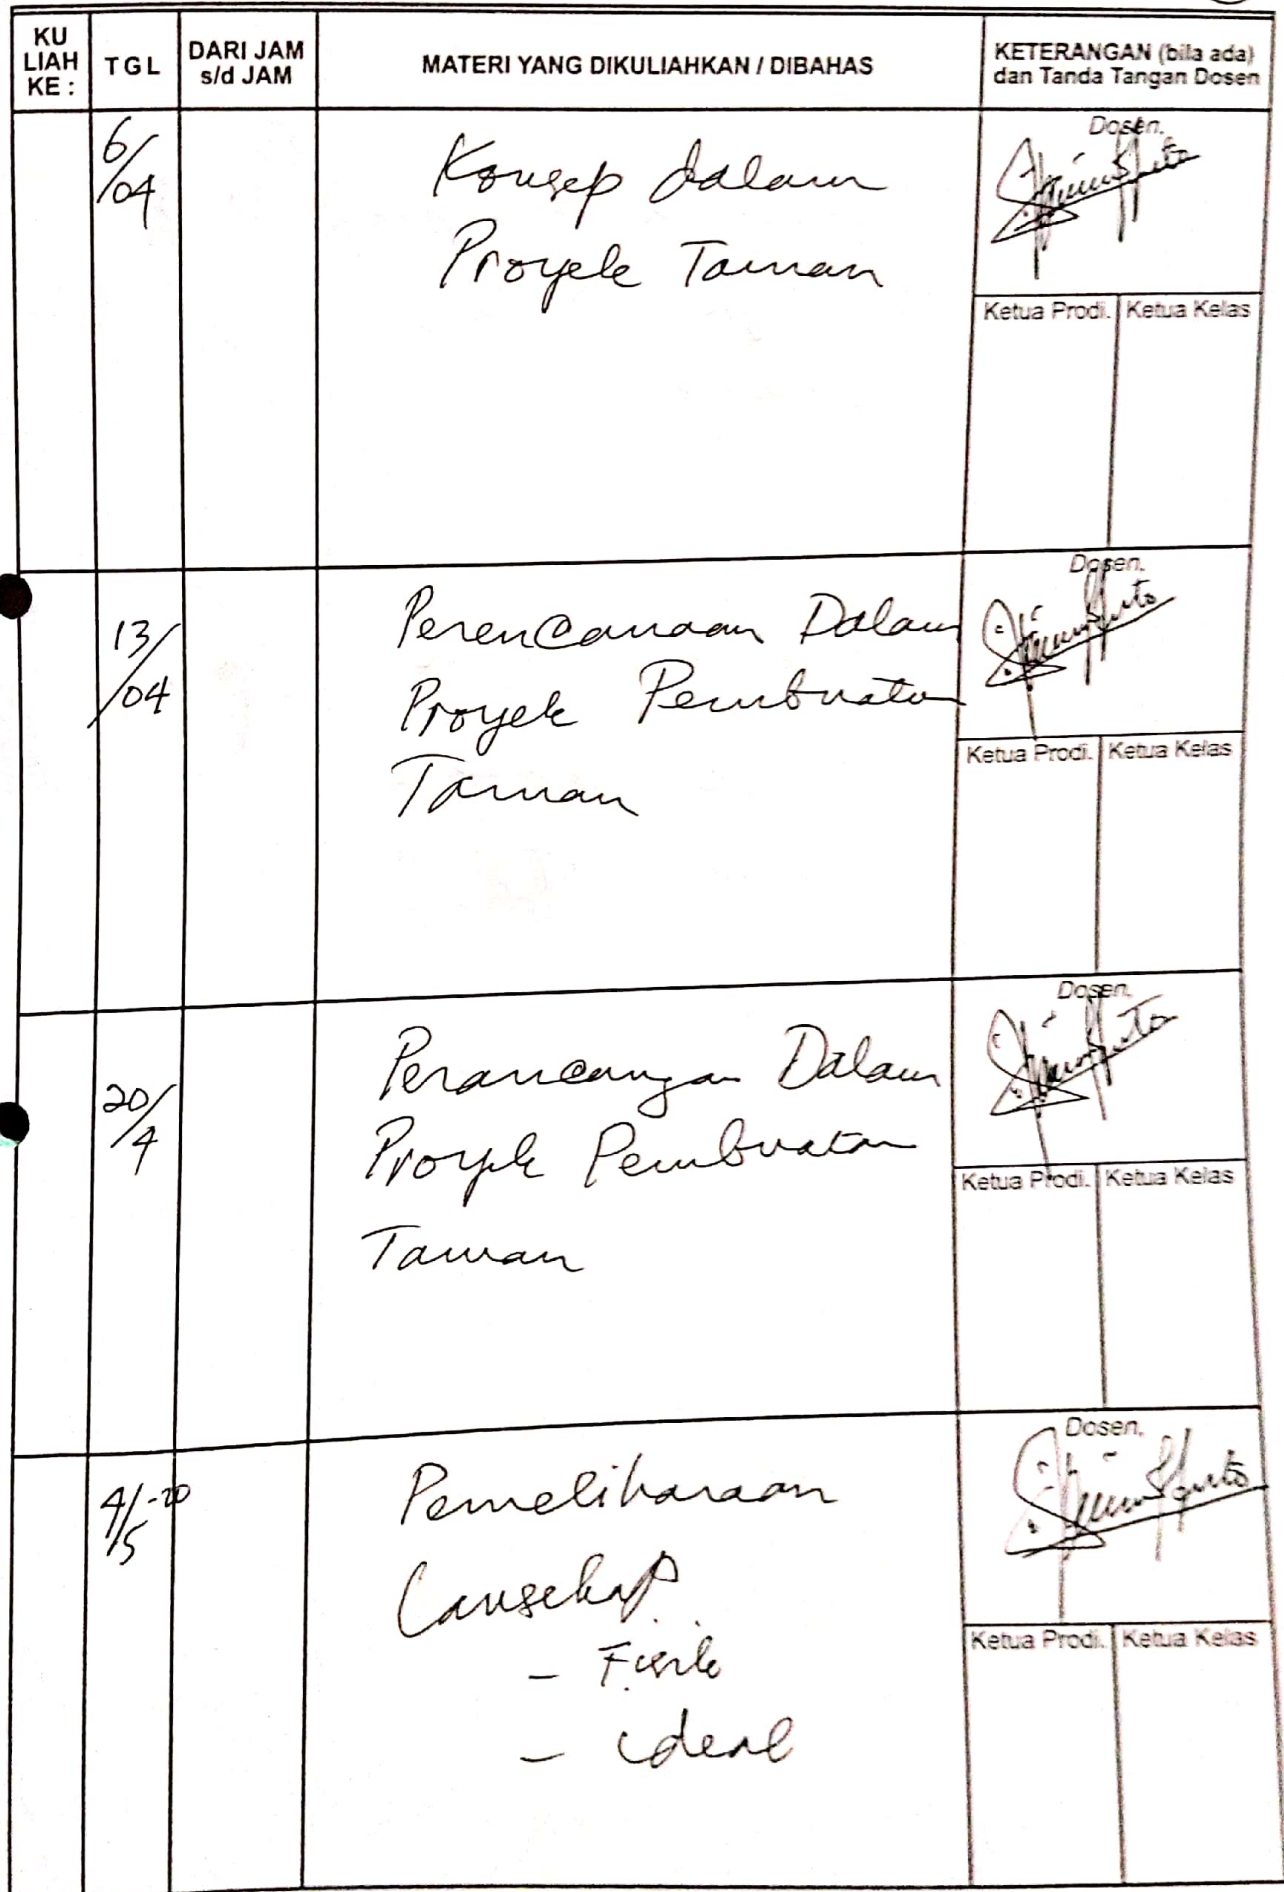 KU LIAH KE :
TGL
DARI JAM s/d JAM
MATERI YANG DIKULIAHKAN / DIBAHAS
KETERANGAN (bila ada) dan Tanda Tangan Dosen
6/04
Konsep dalam
Proyek Taman
Dosen,
Ketua Prodi. Ketua Kelas
13/04
Perencanaan Dalam
Proyek Pembuatan
Taman
Dosen,
Ketua Prodi. Ketua Kelas
20/4
Perancangan Dalam
Proyek Pembuatan
Taman
Dosen,
Ketua Prodi. Ketua Kelas
4/5-20
Pemeliharaan
Lansekap
- Fisik
- ideal
Dosen,
Ketua Prodi. Ketua Kelas